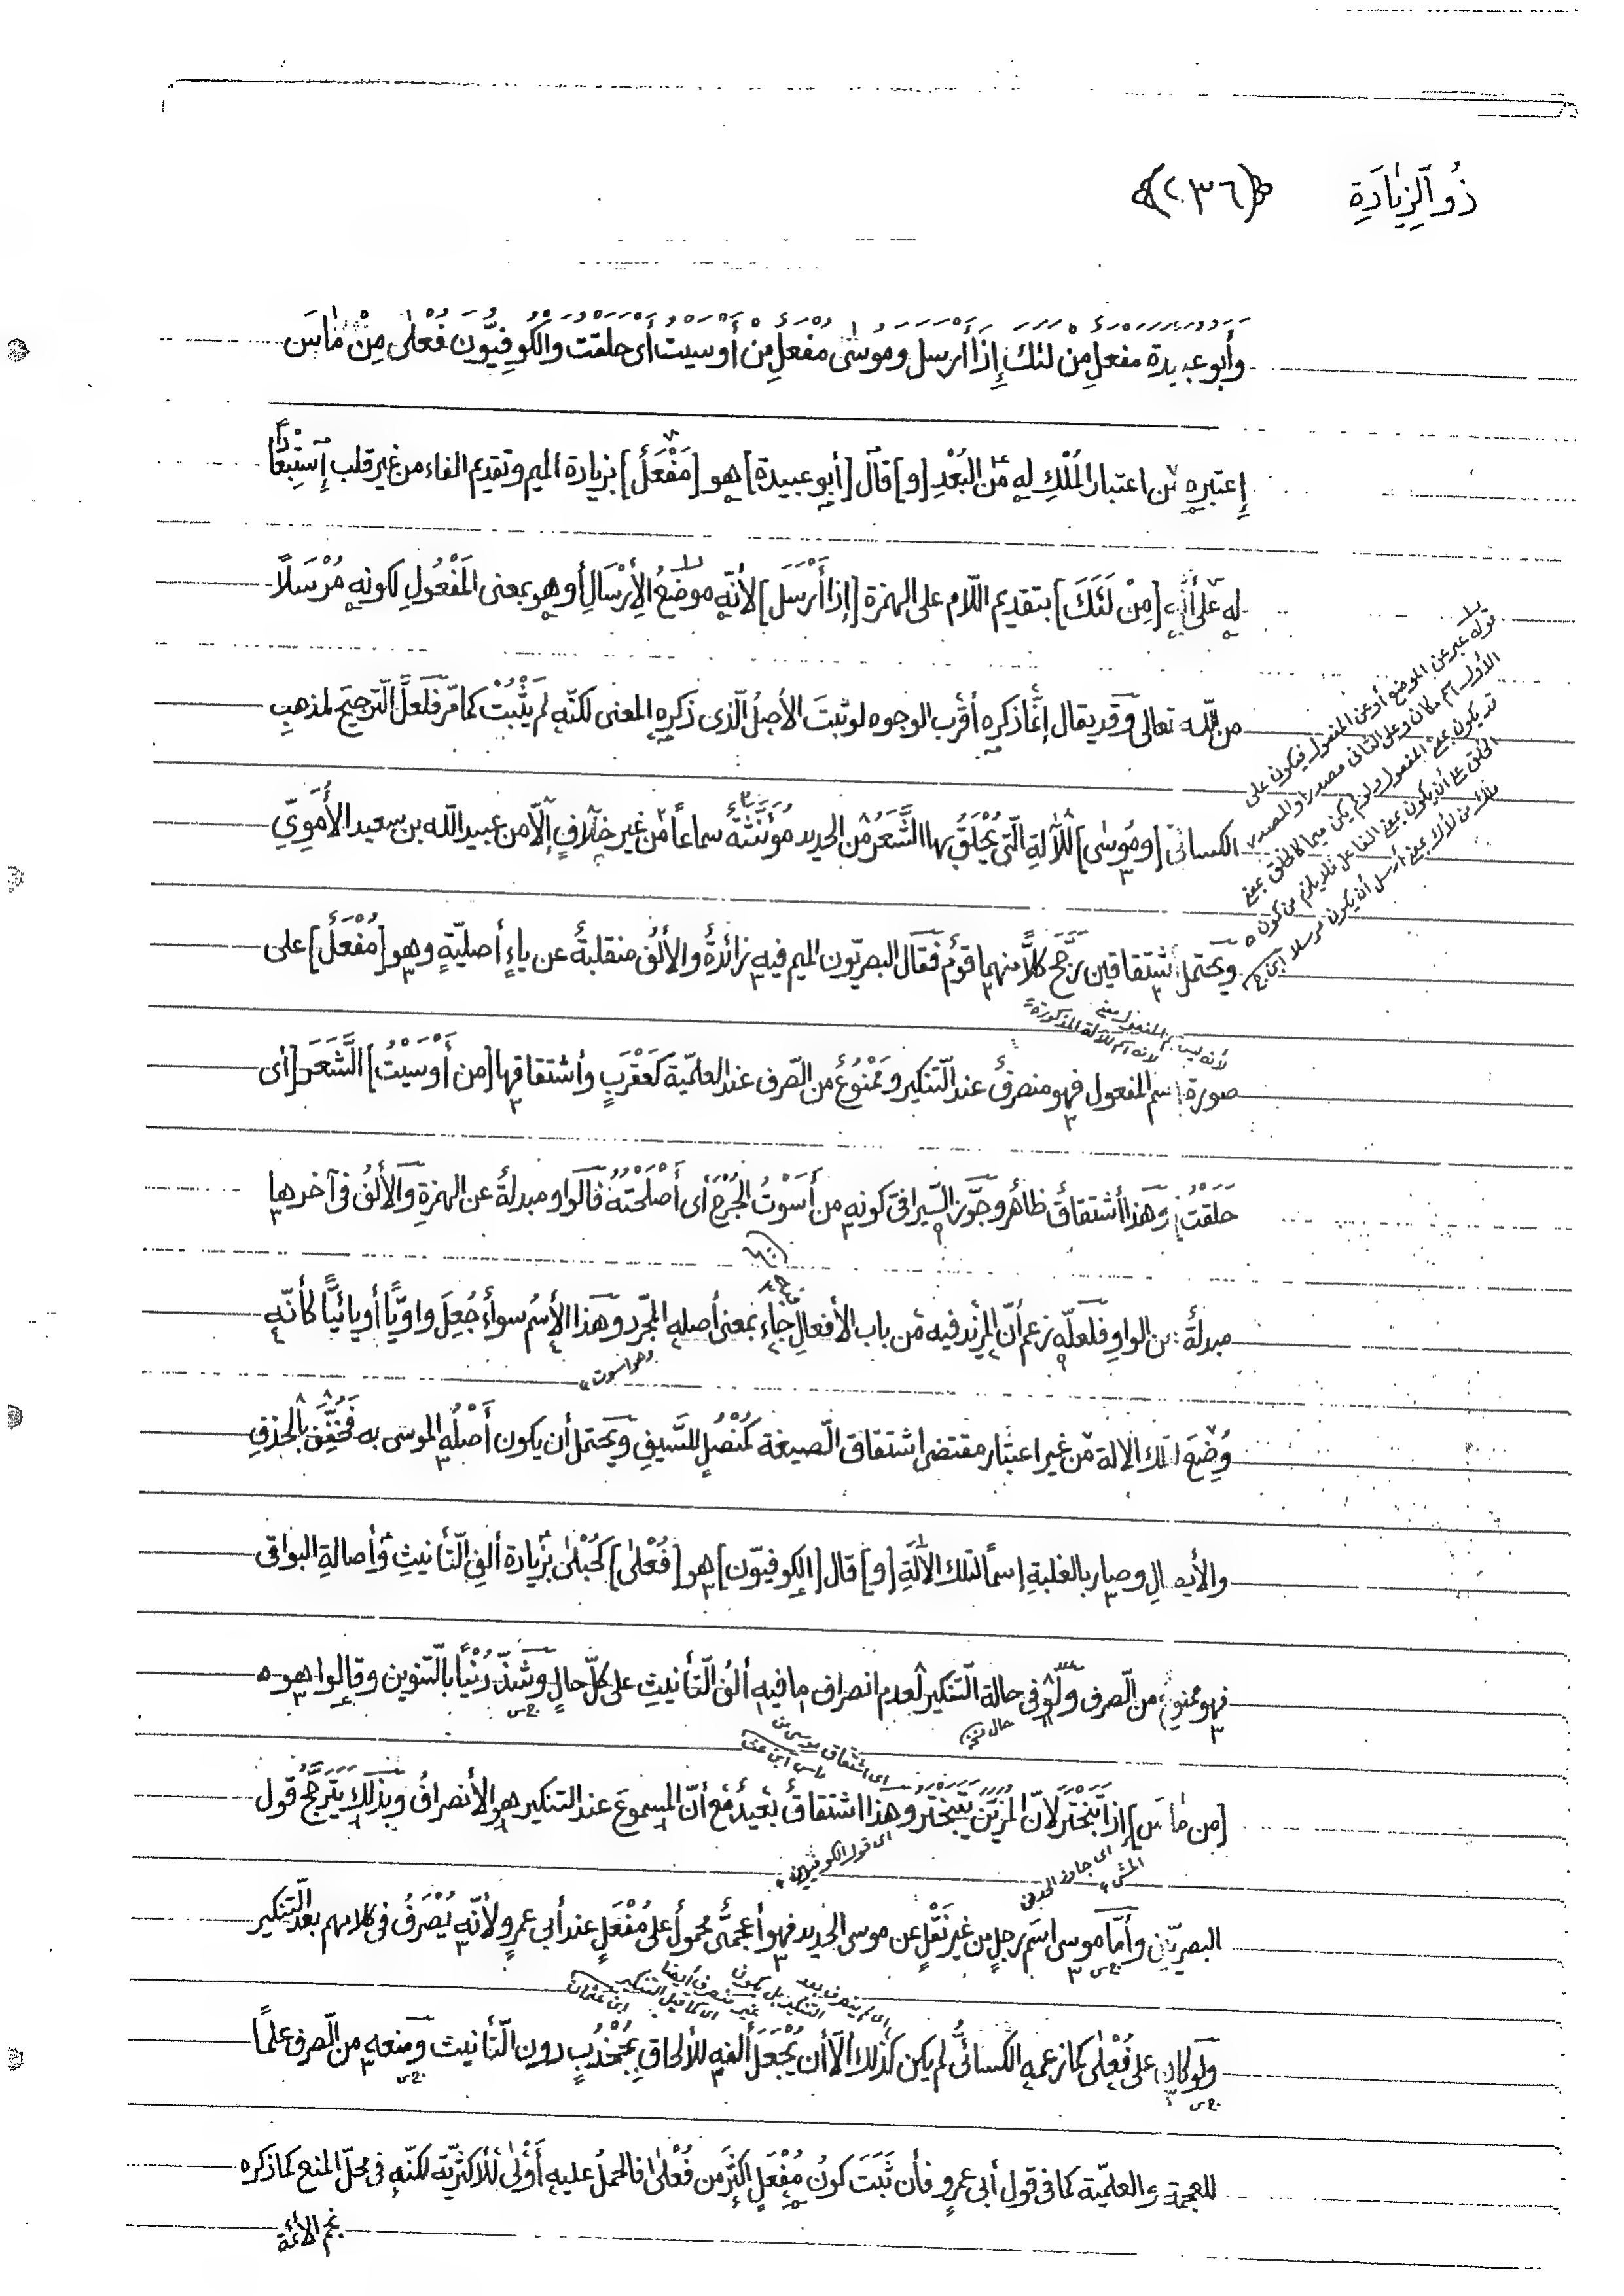 ذُو الزِّيَادَةِ ﴿٢٣٦﴾
وأبو عبيدة مفعل من لئك إذا أرسل وموسى مفعل من أوسيت أى حلقت والكوفيون فعلى من ماس
إعتبره من اعتبار المَلْكِ له من البُعْدِ [و] قال [أبو عبيدة] هو [مَفْعَلٌ] بزيادة الميم وتقديم الفاء من غير قلب إستبعادًا
له على أنّه [مِنْ لَئَكَ] بتقديم اللّام على الهمزة [إذا أَرْسَلَ] لأنّه موضعُ الإرْسَالِ أو هو بمعنى المَفْعُولِ لكونه مُرْسَلًا
من الله تعالى وقد يقال إنّما ذكره أقرب الوجوه لو ثبتَ الأصلُ الّذى ذكره المعنى لكنّه لم يَثْبُتْ كما مرّ فلعلّ التّرجيح لمذهبِ
الكسائىّ [ومُوسَى] للآلةِ الّتى يُحْلَقُ بها الشَّعَرُ من الحديد مؤنّثةٌ سماعًا من غير خلافٍ إلّا من عبيد الله بن سعيد الأُمَوِيّ
ويحتمل أشتقاقين رجّح كلًّا منهما قومٌ فقال البصريّون الميم فيه زائدةٌ والألفُ منقلبةٌ عن ياءٍ أصليّةٍ وهو [مُفْعَلٌ] على
صورة إسم المفعول فهو منصرفٌ عند التّنكير وممنوعٌ من الصّرف عند العلميّة كعَقْرَبٍ وأشتقاقها [من أَوْسَيْتُ] الشَّعَرَ [أى
حلقتُ] وهذا أشتقاقٌ ظاهرٌ وجوّز السّيرافىّ كونه من أَسَوْتُ الجُرْحَ أى أَصْلَحْتُهُ فالواو مبدلةٌ عن الهمزةِ والألفُ فى آخرها
مبدلةٌ من الواوِ فلعلّه زعم أنّ المزيد فيه من باب الأفعالِ جاء بمعنى أصله المجّرد وهذا الأسمُ سواءٌ جُعِلَ واويًّا أو يائيًّا كأنّه
وُضِعَ لتلك الالة من غير اعتبار مقتضى اشتقاق الصيغة كمُنْصُلٍ للسَّيفِ ويحتمل أن يكون أَصْلُه الموسى به فَخُفِّفَ بالحذفِ
والأيصالِ وصار بالغلبةِ إسمًا لتلك الآلَةِ [و] قال [الكوفيّون] هو [فُعْلٰى] كحُبْلٰى بزيادة ألفِ التّأنيثِ وأصالةِ البواقى
فهو ممنوعٌ من الصّرف ولو فى حالة التّنكير لعدم انصراف ما فيه ألفُ التّأنيثِ على كلّ حالٍ وشذّ دُنْيًا بالتّنوين وقالوا هو
[من مَاسَ] إذا تبختر لأنّ المزيّن يتبختر وهذا اشتقاقٌ بعيدٌ مع أنّ المسموعَ عند التنكير هو الأنصرافُ وبذلك يترجّحُ قول
البصريّين وأمّا موسى اسم رجل من غير نَقْلٍ عن موسى الحديد فهو أعجمىٌّ محمولٌ على مُفْعَلٍ عند أبى عمرو لأنّه يُصْرَفُ فى كلامهم بعد التّنكير
ولو كان على فُعْلٰى كما زعمه الكسائىُّ لم يكن كذلك ألّا أن يُجْعَلَ ألفه للألحاقِ بجُخْدُبٍ دون التّأنيث ومنعه من الصّرف علمًا
للعجمة والعلميّة كما فى قول أبى عمرو فأن ثَبَتَ كونُ مُفْعَلٍ اكثَرَ من فُعْلٰى فالحملُ عليه أَوْلٰى للأكثريّة لكنّه فى محلّ المنع كما ذكره
نجم الأئمّة
قوله عبر عن الموضع أو عن المفعول فيكون على
الأول اسم مكان وعلى الثانى مصدرا والمصدر
قد يكون بمعنى المفعول ولو لم يكن ميميا كالخلق بمعنى
لأنه ليس بمفعول
لانه اسم للآلة المذكورة
وهو اسوت
اى اشتقاق موسى من
ماس
اى جاوز الحد فى
المشى
اى قول الكوفيين
اى لم ينصرف بعد
التنكير بل يكون
غير منصرف أيضا
اى كما قبل التنكير